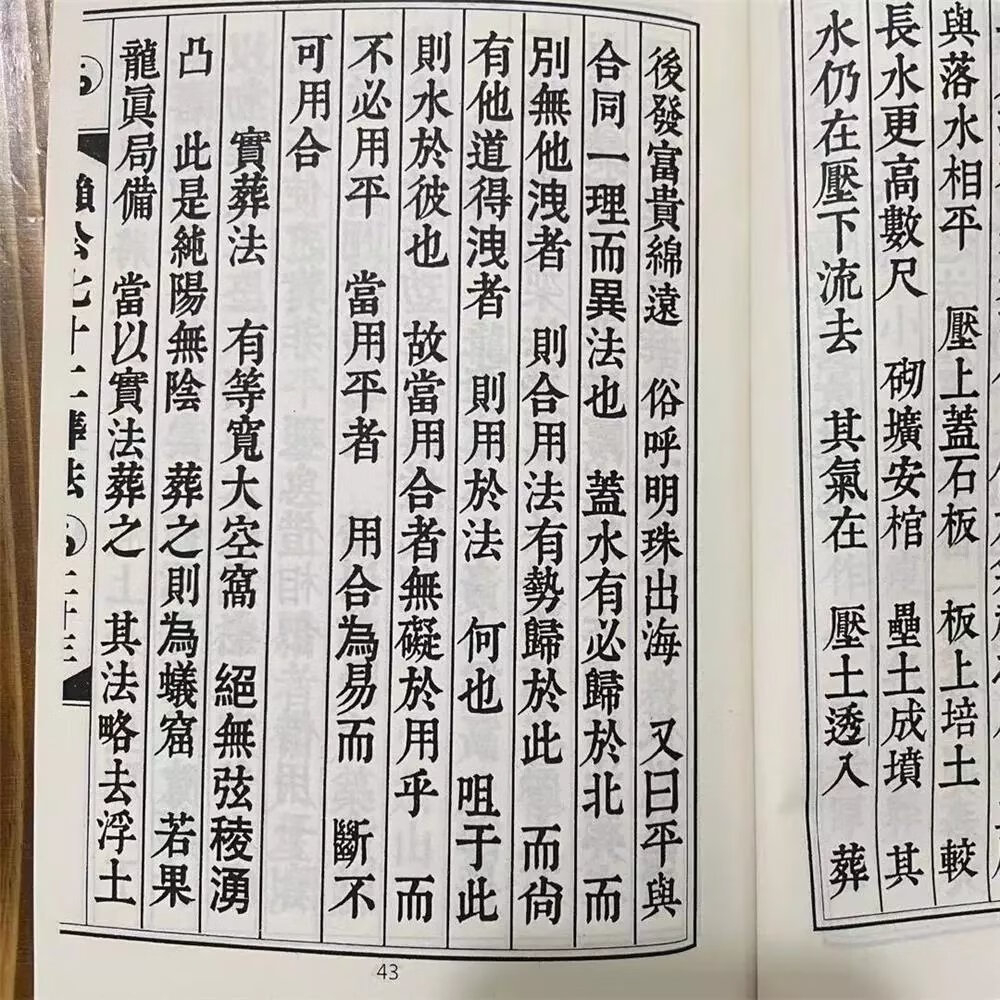 與落水相平　壓上蓋石板　板上培土　較
長水更高數尺　砌壙安棺　壘土成墳　其
水仍在壓下流去　其氣在　壓土透入　葬
後發富貴綿遠　俗呼明珠出海　又曰平與
合同一理而異法也　蓋水有必歸於北　而
別無他洩者　則合用法有勢歸於此　而尙
有他道得洩者　則用於法　何也　咀于此
則水於彼也　故當用合者無礙於用乎　而
不必用平　當用平者　用合為易而　斷不
可用合
實葬法　有等寬大空窩　絕無弦稜湧
凸　此是純陽無陰　葬之則為蟻窟　若果
龍眞局備　當以實法葬之　其法略去浮土
賴公七十二葬法　二十三
43